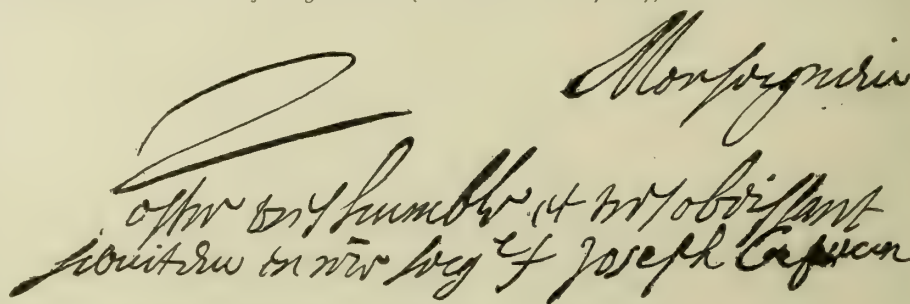 Monseigneur
Vostre tres humble et tres obeissant
serviteur en nr̄e seigʳ f Joseph Capucin